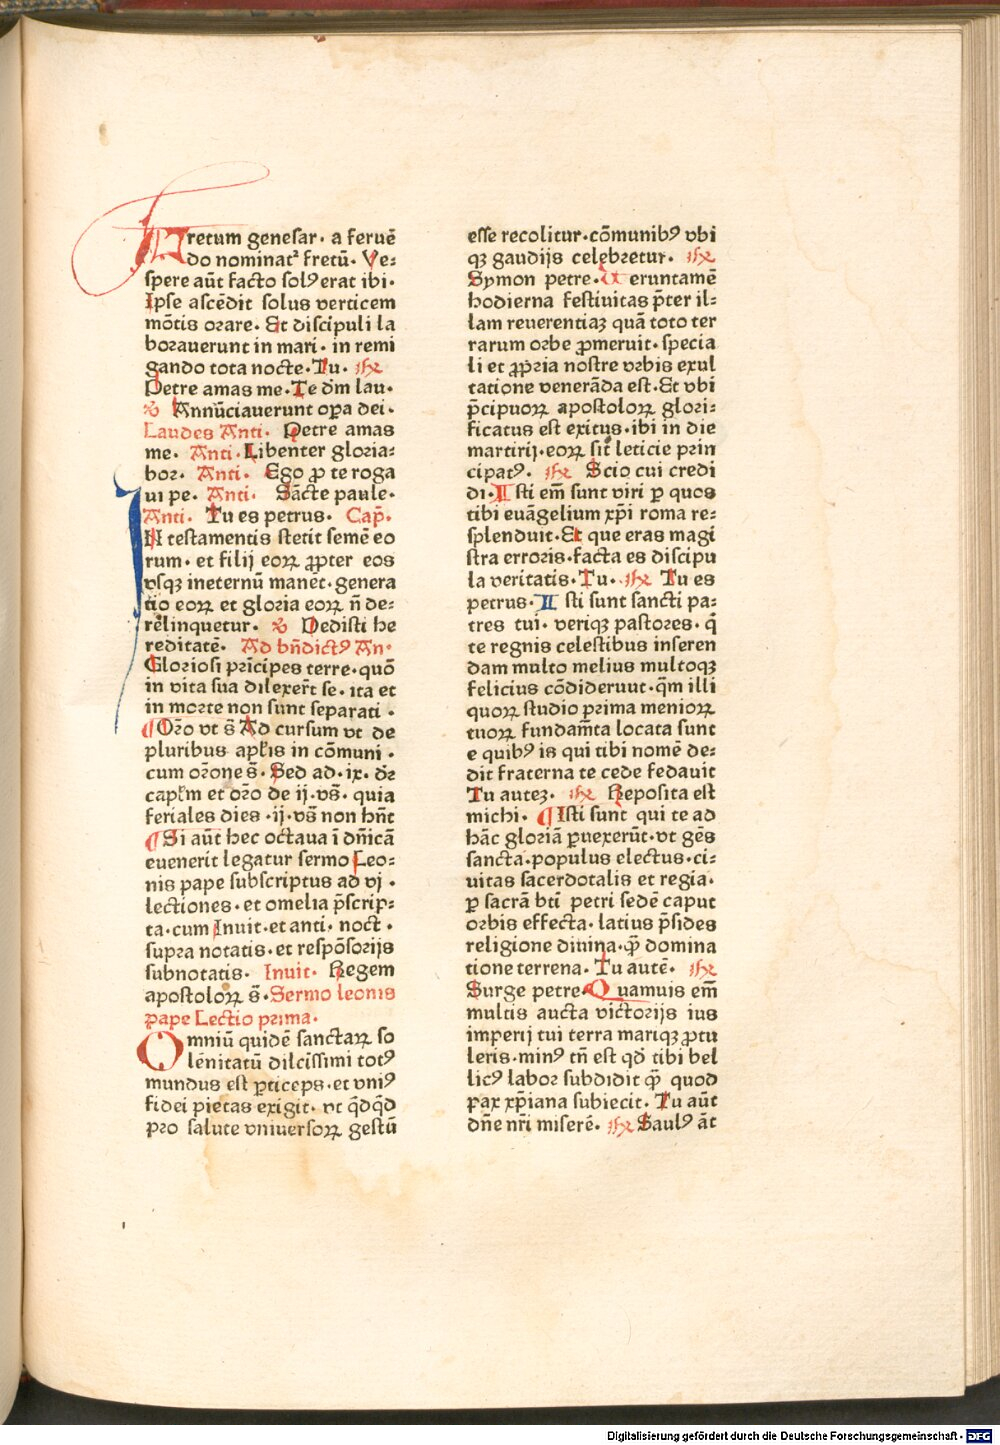 Fretum genesar· a feruē
do nominat᷑ fretū· Ve⸗
spere aūt facto solꝰ erat ibi·
Ipse ascēdit solus verticem
mōtis orare· Et discipuli la
borauerunt in mari· in remi
gando tota nocte· Tu· ℟
Petre amas me· Te dm̄ lau·
℣ Annūciauerunt oꝑa dei·
Laudes Anti· Petre amas
me· Anti· Libenter gloria⸗
bor· Anti· Ego ꝓ te roga
ui pe· Anti· Sācte paule·
Anti· Tu es petrus· Cap̄·
IN testamentis stetit semē eo
rum· et filij eoꝝ ꝓpter eos
vsqꝫ ineternū manet· genera
tio eoꝝ et gloria eoꝝ n̄ de⸗
relinquetur· ℣ Dedisti he
reditatē· Ad bn̄dictꝰ An·
Gloriosi prīcipes terre· quō
in vita sua dilexer̄t se· ita et
in morte non sunt separati·
¶ Orō vt s̄ Ad cursum vt de
pluribus apl̄is in cōmuni·
cum orōne s̄· Sed ad·ix· dr̄
capl̄m et orō de ij· vs̄· quia
feriales dies·ij· vs̄ non hn̄t
¶ Si aūt hec octaua ī dn̄icā
euenerit legatur sermo Leo⸗
nis pape subscriptus ad vj·
lectiones· et omelia p̄scrip⸗
ta· cum Inuit· et anti· noct·
supra notatis· et respōsorijs
subnotatis· Inuit· Regem
apostoloꝝ s̄· Sermo leonis
pape Lectio prima·
Omniū quidē sanctaꝝ so
lēnitatū dilcīssimi totꝰ
mundus est ꝑticeps· et vniꝰ
fidei pietas exigit· vt q̄dq̄d
pro salute vniuersoꝝ gestū
esse recolitur· cōmunibꝰ vbi
qꝫ gaudijs celebretur· ℟
Symon petre· Ueruntamē
hodierna festiuitas p̄ter il⸗
lam reuerentiaꝫ quā toto ter
rarum orbe ꝓmeruit· specia
li et ꝓpria nostre vrbis exul
tatione venerāda est· Et vbi
p̄cipuoꝝ apostoloꝝ glori⸗
ficatus est exitus· ibi in die
martirij· eoꝝ sit leticie prin
cipatꝰ· ℟ Scio cui credi
di· Isti em̄ sunt viri ꝑ quos
tibi euāgelium xp̄i roma re⸗
splenduit· Et que eras magi
stra erroris· facta es discipu
la veritatis· Tu· ℟ Tu es
petrus· Isti sunt sancti pa⸗
tres tui· veriqꝫ pastores· q̄
te regnis celestibus inseren
dam multo melius multoqꝫ
felicius cōdideruut· q̄m illi
quoꝝ studio prima menioꝝ
tuoꝝ fundam̄ta locata sunt
e quibꝰ is qui tibi nomē de⸗
dit fraterna te cede fedauit
Tu auteꝫ· ℟ Reposita est
michi· ¶ Isti sunt qui te ad
hāc gloriā ꝓuexerūt· vt gēs
sancta· populus electus· ci⸗
uitas sacerdotalis et regia·
ꝑ sacrā bti᷑ petri sedē caput
orbis effecta· latius p̄sides
religione diuina· q̄ domina
tione terrena· Tu autē· ℟
Surge petre· Quamuis em̄
multis aucta victorijs ius
imperij tui terra mariqꝫ ꝓtu
leris· minꝰ tn̄ est qd̄ tibi bel
licꝰ labor subdidit q̄ quod
pax xp̄iana subiecit· Tu aūt
dn̄e nr̄i miserē· ℟ Saulꝰ āt
Digitalisierung gefördert durch die Deutsche Forschungsgemeinschaft - DFG